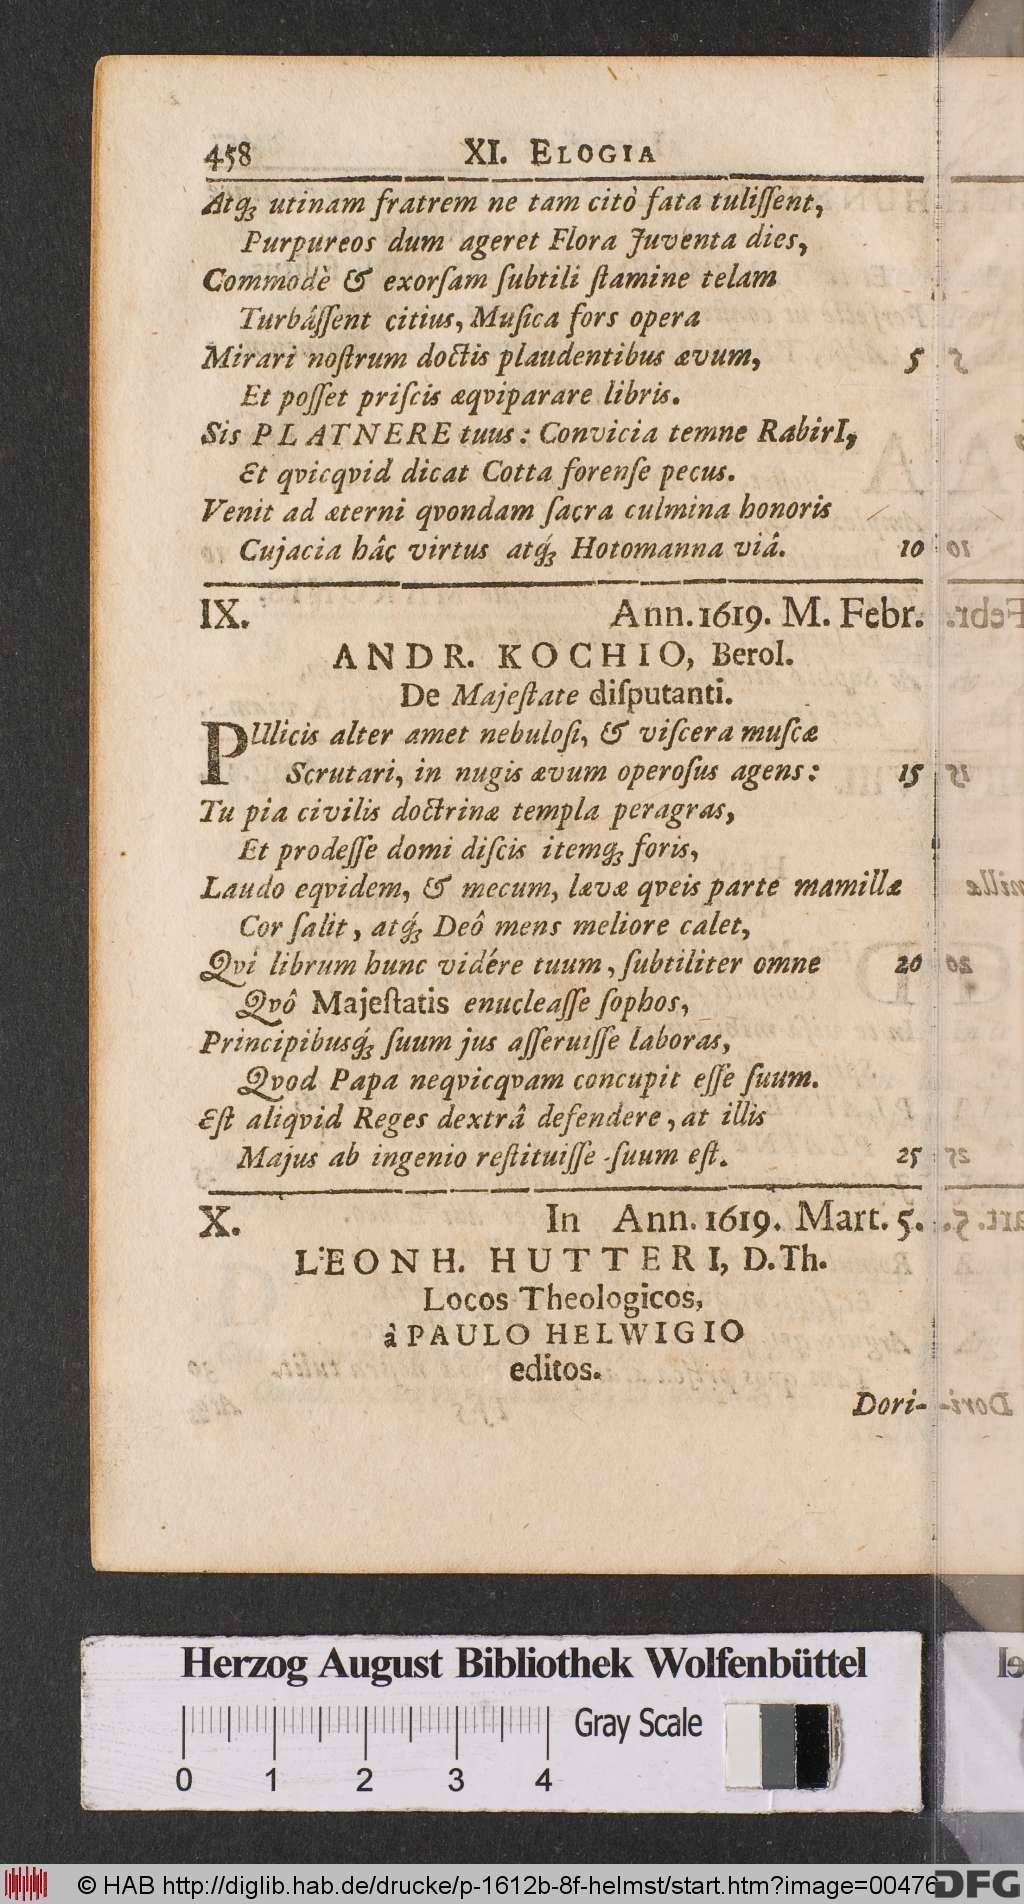 458 XI. ELOGIA
Atq́ꝫ utinam fratrem ne tam citò fata tuliſſent,
Purpureos dum ageret Flora Juventa dies,
Commodè & exorſam ſubtili ſtamine telam
Turbâſſent citius, Muſica fors opera
Mirari noſtrum doctis plaudentibus ævum, 5
Et poſſet priſcis æqviparare libris.
Sis PLATNERE tuus: Convicia temne RabirI,
Et qvicqvid dicat Cotta forenſe pecus.
Venit ad æterni qvondam ſacra culmina honoris
Cujacia hâc virtus atq́ꝫ Hotomanna viâ. 10
IX. Ann. 1619. M. Febr.
ANDR. KOCHIO, Berol.
De Majeſtate diſputanti.
PUlicis alter amet nebuloſi, & viſcera muſcæ
Scrutari, in nugis ævum operoſus agens: 15
Tu pia civilis doctrinæ templa peragras,
Et prodeſſe domi diſcis itemqꝫ foris,
Laudo eqvidem, & mecum, lævæ qveis parte mamillæ
Cor ſalit, atq́ꝫ Deô mens meliore calet,
Qvi librum hunc vidére tuum, ſubtiliter omne 20
Qvô Majeſtatis enucleaſſe ſophos,
Principibusq́ꝫ ſuum jus aſſeruiſſe laboras,
Qvod Papa neqvicqvam concupit eſſe ſuum.
Eſt aliqvid Reges dextrâ defendere, at illis
Majus ab ingenio reſtituiſſe ſuum eſt. 25
X. In Ann. 1619. Mart. 5.
LEONH. HUTTERI, D.Th.
Locos Theologicos,
à PAULO HELWIGIO
editos.
Dori-
Herzog August Bibliothek Wolfenbüttel
Gray Scale
0 1 2 3 4
© HAB http://diglib.hab.de/drucke/p-1612b-8f-helmst/start.htm?image=00476
DFG